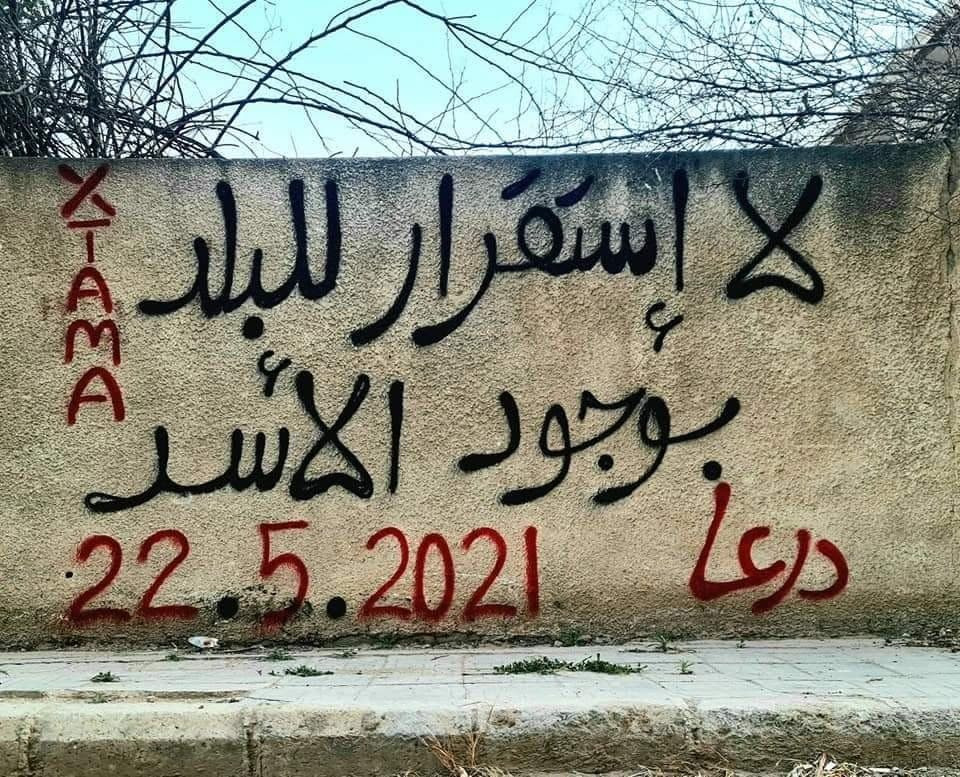 لا إستقرار للبلد
بوجود الأسد
درعا 22.5.2021
XTAMA